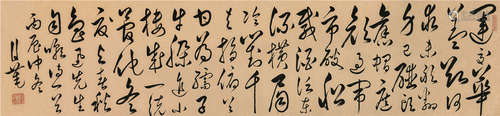 運交華
蓋欲何
求未敢翻
身已碰頭
舊帽遮
顏過鬧
市破船
載酒泛中
流橫眉
冷對千
夫指俯首
甘為孺子
牛躲進小
樓成一統
管他冬
夏與春秋
魯迅先生
自嘲詩一首
丙辰中冬